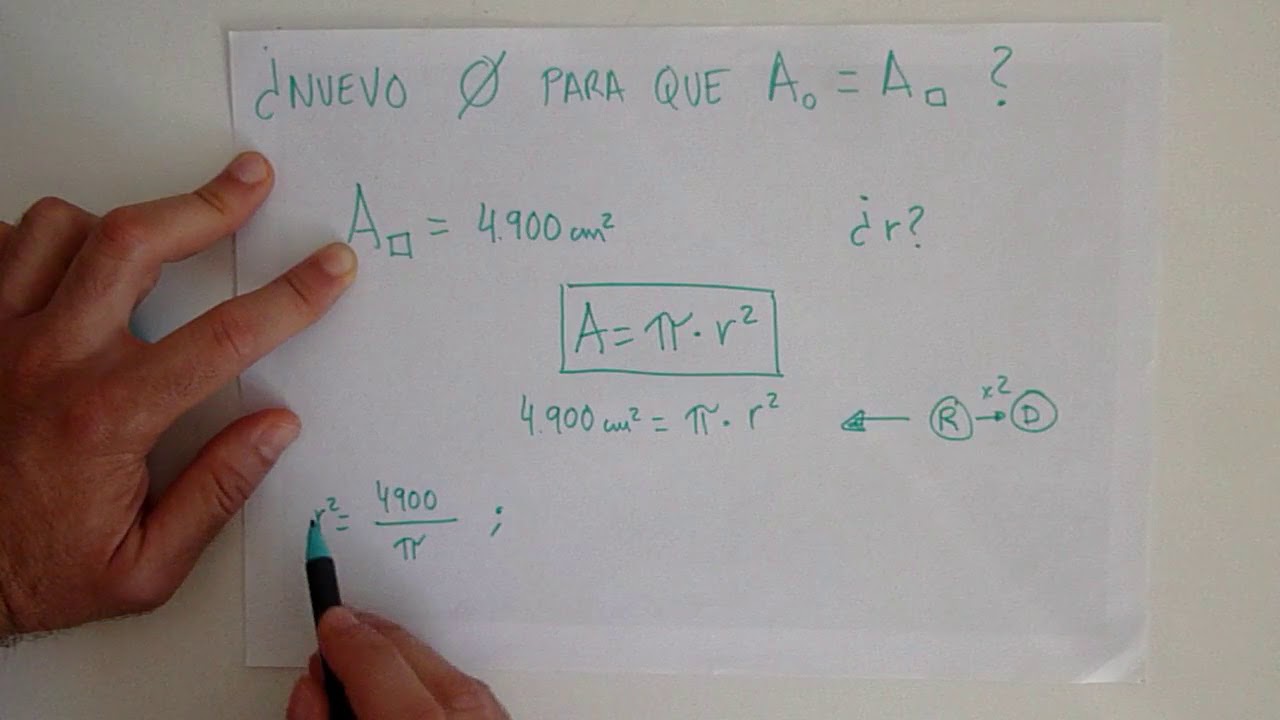 ¿NUEVO Ø PARA QUE A○ = A□ ?
A□ = 4.900 cm² ¿r?
A = π · r²
4.900 cm² = π · r² ← R x2→ D
r² = 4900/π ;